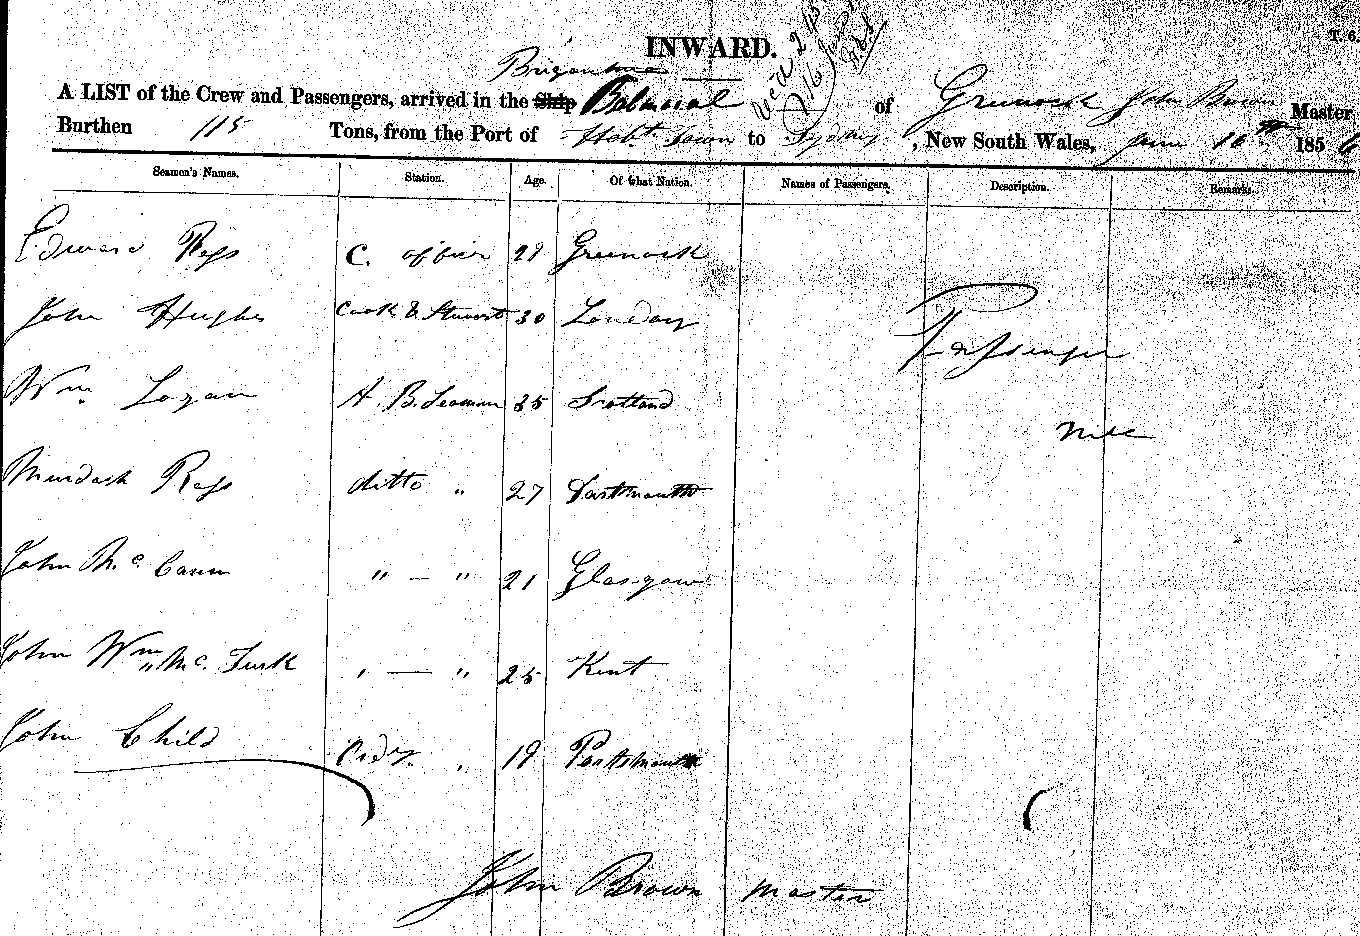 INWARD.
T. 6.
Brigantine
A LIST of the Crew and Passengers, arrived in the Ship Balmoral of Greenock John Brown Master
Burthen 115 Tons, from the Port of Hobt. Town to Sydney, New South Wales, June 16th 1856
Seamen's Names. Station. Age. Of what Nation. Names of Passengers. Description. Remarks.
Edward Ross C. officer 29 Greenock
John Hughes Cook & Steward 30 London
Passengers
Wm. Logan A. B. Seaman 35 Scotland
Murdock Ross ditto " 27 Dartmouth
John Mc Cann " — " 21 Glasgow
John Wm " Mc. Turk " — " 25 Kent
John Child Ordy. " 19 Portsmouth
John Brown Master